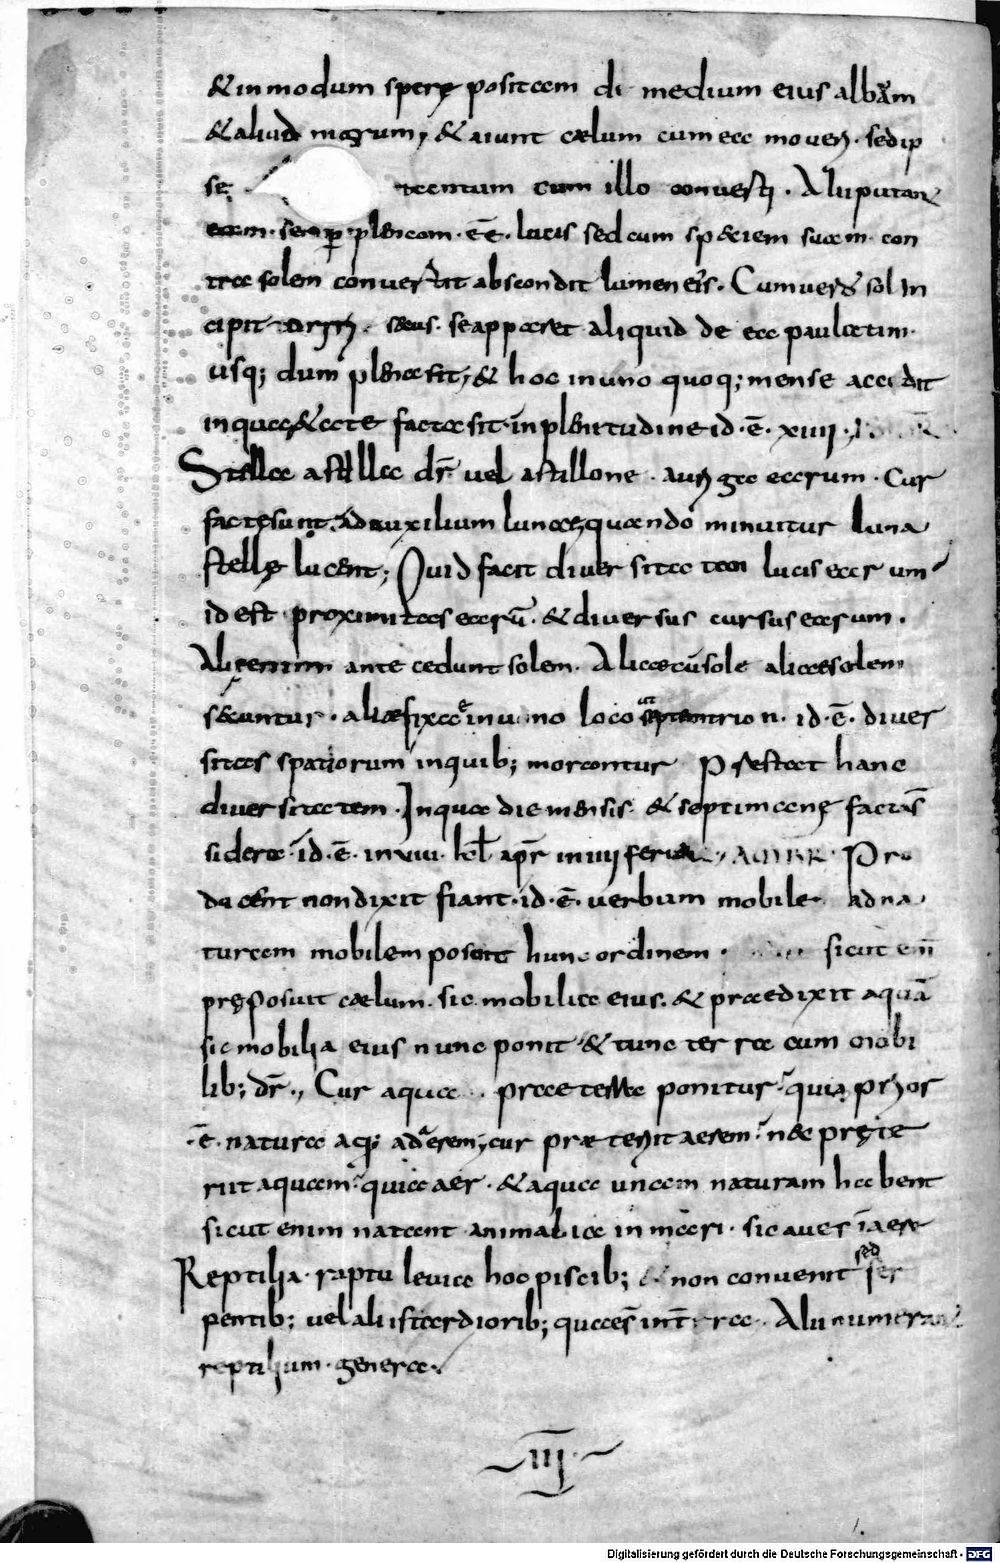 & inmodum sperę positam di medium eius albam
& aliud nigrum, & aiunt cælum cum ea moueri. sed ip
se tantum cum illo conuerti. Alii putant
eam semp plenam. eē. lucis sed cum speciem suam con
tra solem conuertit abscondit lumen eis. Cum uero sol in
cipit secus. se apparet aliquid de ea paulatim.
usq; dum plena fit, & hoc in uno quoq; mense accidit
in qua &ate facta sit. in plenitudine id. ē. xiiii.
Stellæ a stellæ dr̄ uel a stillone. eorum. Cur
factę sunt. ad auxilium lunæ quando minuitur luna
stellę lucent; Quid facit diuersitatem lucis eorum
id est proximitas earū. & diuersus cursus earum.
Alię enim ante cedunt solem. Aliæ cū sole aliæ solem
secuntur. aliæ fixæ in uno loco ut septentrion. id. ē. diuer
sitas spatiorum in quib; morantur Prestat hanc
diuersitatem. In qua die mensis & septimanę factas
sidera. id. ē. in xiii. kl apr̄ in iiii feria Pro
ducent non dixit fiant. id. ē. uerbum mobile ad na
turam mobilem posuit hunc ordinem. sicut enī
pręposuit cælum. sic mobilia eius. & prædixit aquā
sic mobilia eius nunc ponit & tunc terræ cum mobi
lib; dr̄., Cur aquæ præ terre ponitur. quia prior
. ē. natura aq; ad aerem; cur præterit aerem. nec pręte
riit aquam. quia aer. & aquæ unam naturam habent
sicut enim natant animalia in mari. sic aues in aere
Reptilia. raptu leuia hoc piscib; & non conuenit sed ser
pentib; uel aliis tardiorib; quæ es in terra. Alii numerant
reptilium. genera.
III
Digitalisierung gefördert durch die Deutsche Forschungsgemeinschaft - DFG